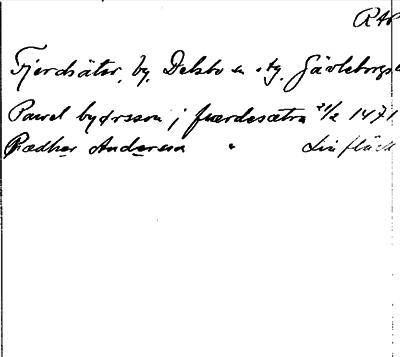 RAP
Fjerdsäter, by, Delsbo sn o tg. Gävleborgs
Pawel byørsson j fwerdesætra 21/2 1471
Pædher Anderson " Lin fläck